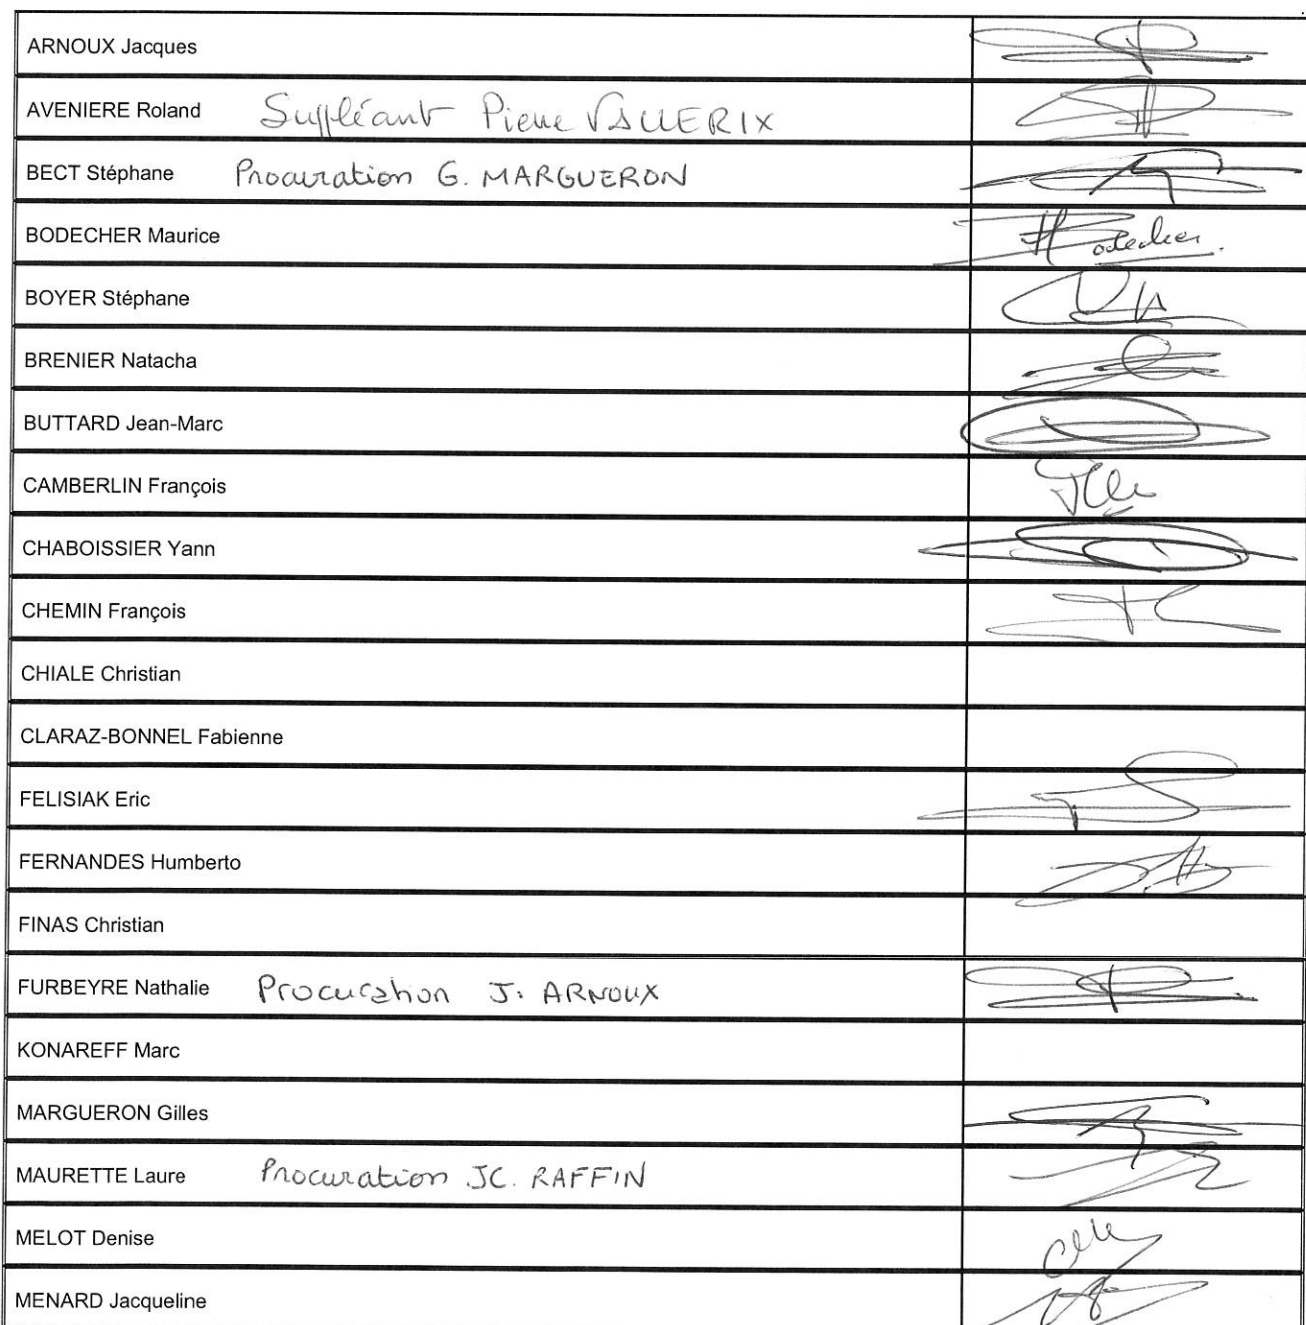 ARNOUX Jacques
AVENIERE Roland Suppléant Pierre VALLERIX
BECT Stéphane Procuration G. MARGUERON
BODECHER Maurice Bodecher
BOYER Stéphane
BRENIER Natacha
BUTTARD Jean-Marc
CAMBERLIN François
CHABOISSIER Yann
CHEMIN François
CHIALE Christian
CLARAZ-BONNEL Fabienne
FELISIAK Eric
FERNANDES Humberto
FINAS Christian
FURBEYRE Nathalie Procuration J. ARNOUX
KONAREFF Marc
MARGUERON Gilles
MAURETTE Laure Procuration JC. RAFFIN
MELOT Denise
MENARD Jacqueline